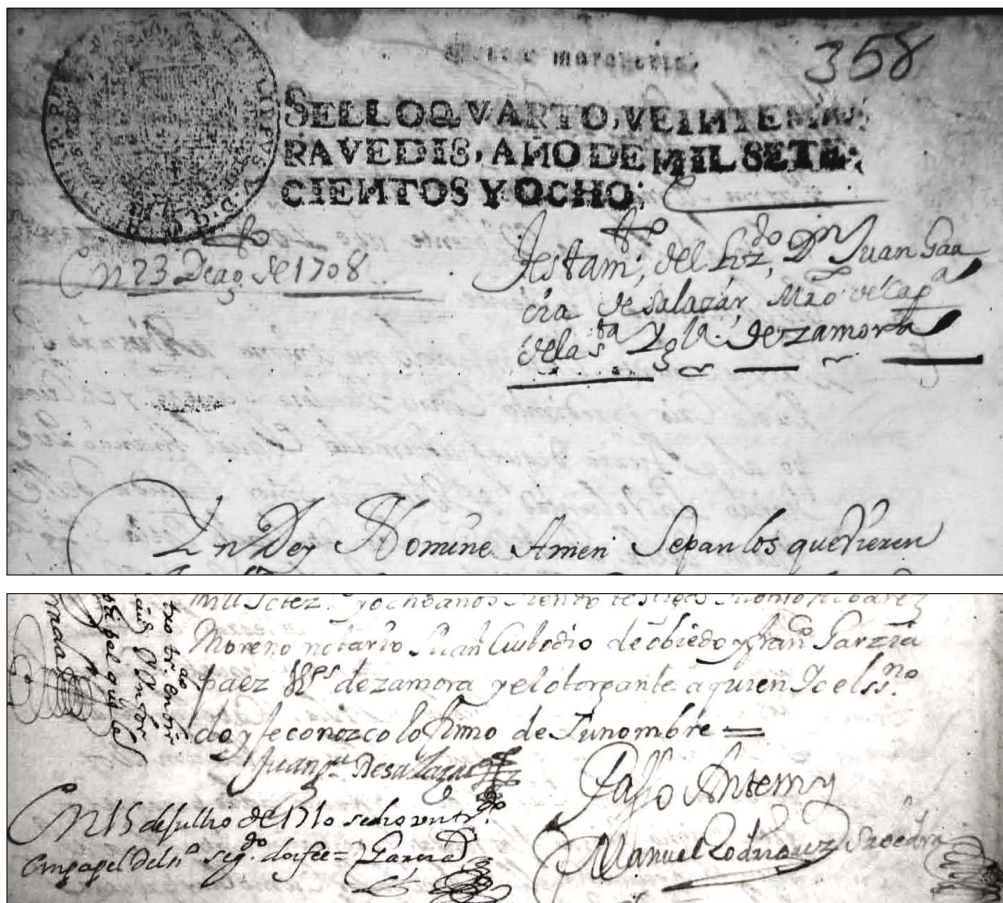 358
SELLO QVARTO, VEINTE MA
RAVEDIS, AÑO DE MIL SETE
CIENTOS Y OCHO.
En 23 de ag.º de 1708
Testam.to del Liz.do D.n Juan Gar
cia de salazar, Mro de Cap.a
de la s.ta Ygla. de zamora
In Dey Nomine Amen Sepan los que Vieren
mill setez.
y ocho años siendo testigos Antonio Albarez
Moreno notario Juan Custodio de obiedo y fran.co Garzia
paez Vº.s de zamora y el otorgante a quien Yo el ss.no
doy fe conozco lo firmo de su nombre =
Juan Gª de salazar
Paso Ante my
Manuel Rodriguez
En 15 de Julio de 1710 se dio un tr.do
en papel del s.º seg.do doi fee = Garcia